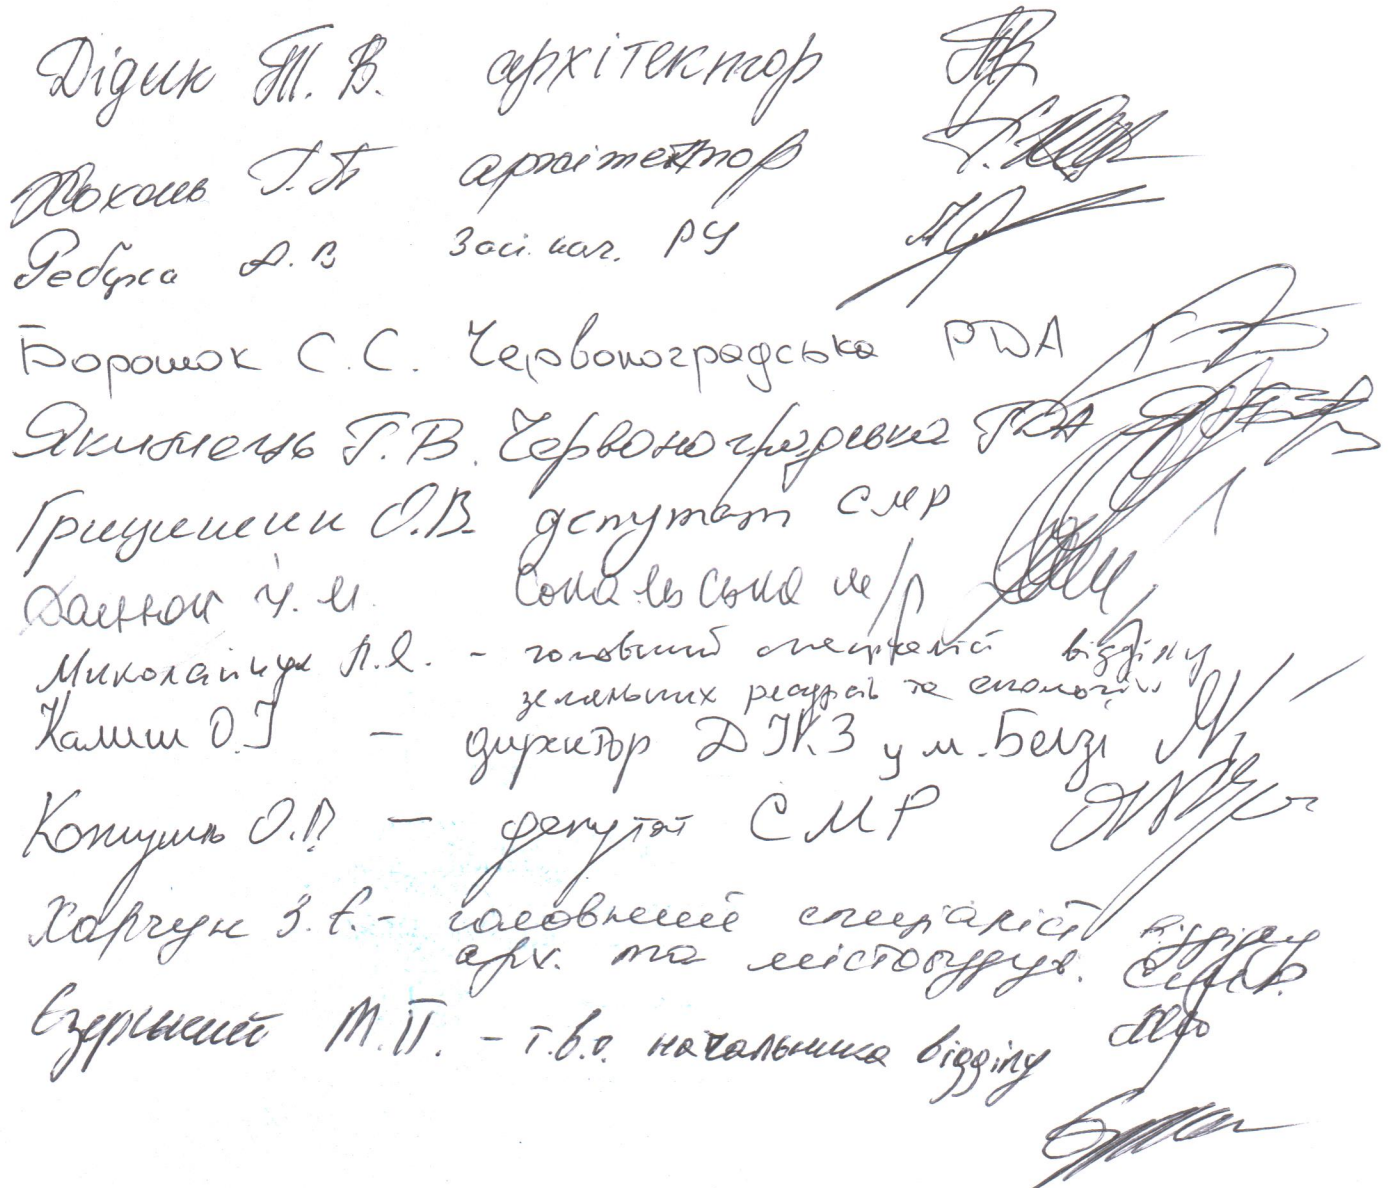 Дідик Т. В. архітектор
Кохань Г. П архітектор
Ребуха А. В Зас. нач. РУ
Борошок С. С. Червоноградська РДА
Якимець Г. В. Червоноградська РДА
Грицишин О. В. депутат СМР
Й. М. Сокальська м/р
Миколайчук Л. Я. - головний спеціаліст відділу
земельних ресурсів та екології
Калиш О. І - директор ДІКЗ у м. Белзі
О. П - депутат СМР
Харчук З. Є. - головний спеціаліст відділу
арх. та містобудув. СМР.
Єзерський М. П. - т. в. о. начальника відділу